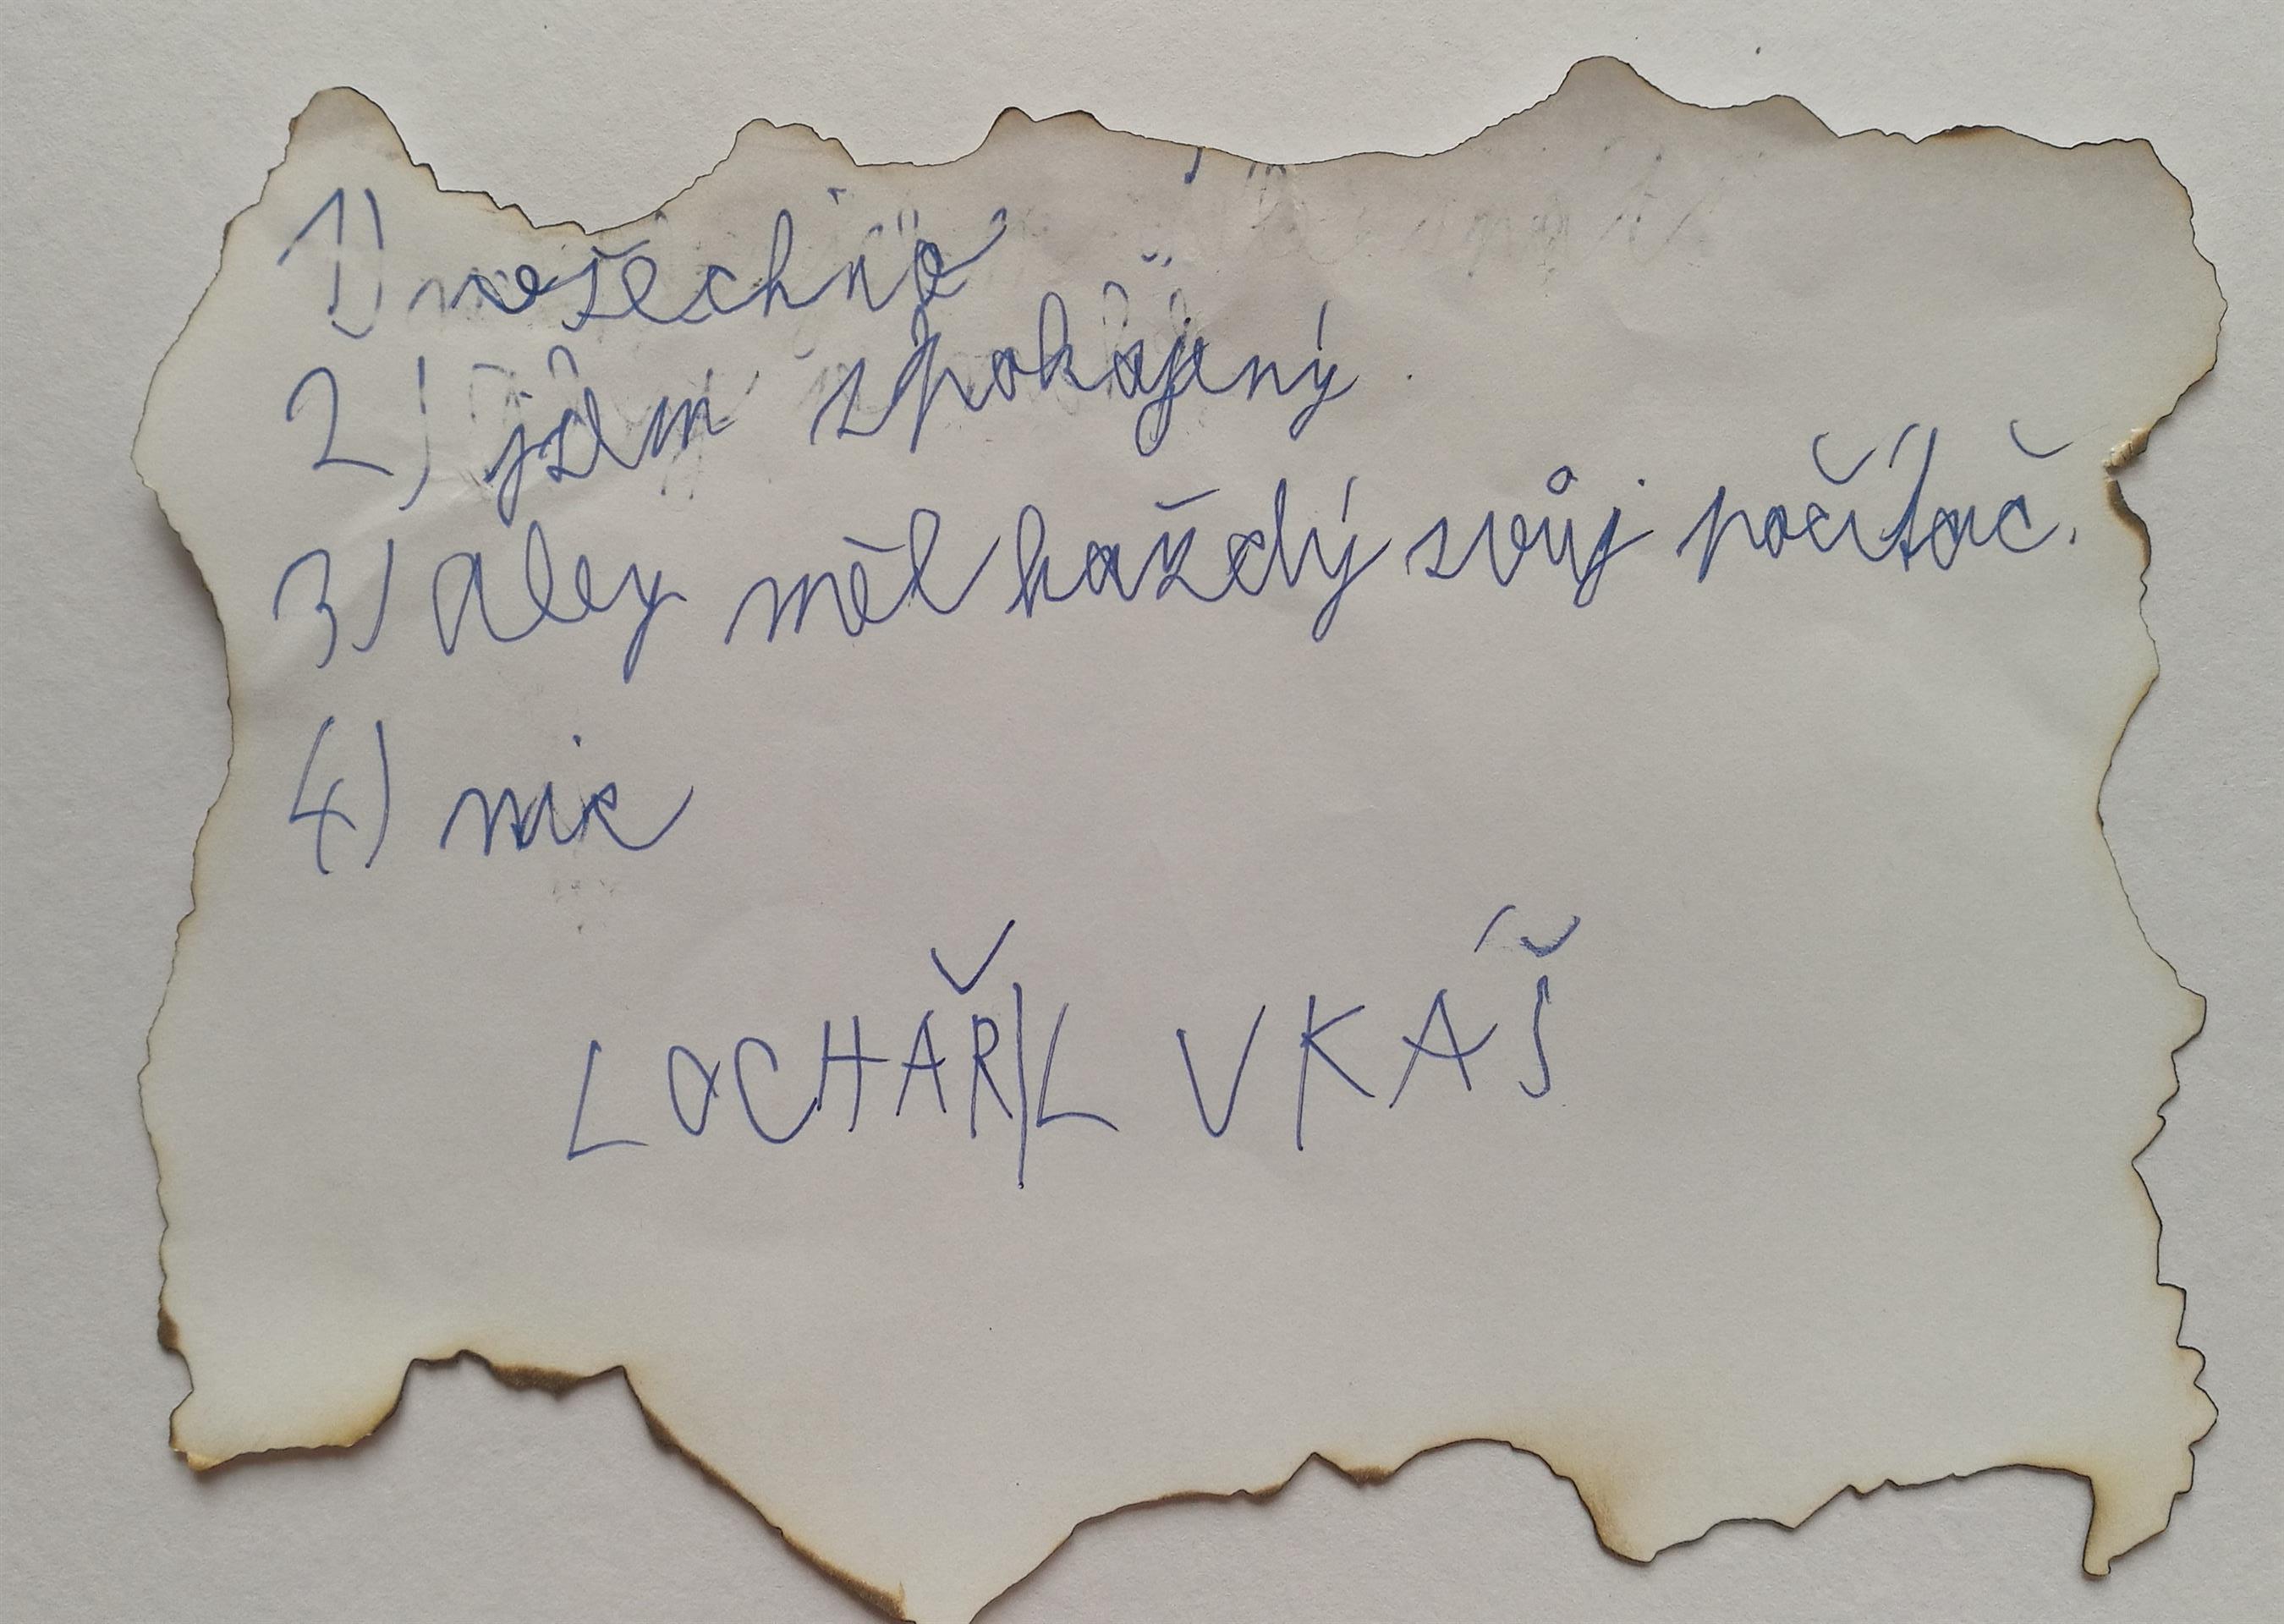 1) vešechno
2) jsem spokojený.
3) Aby měl každý svůj počítač.
4) nic
LOCHAŘ|L VKÁŠ